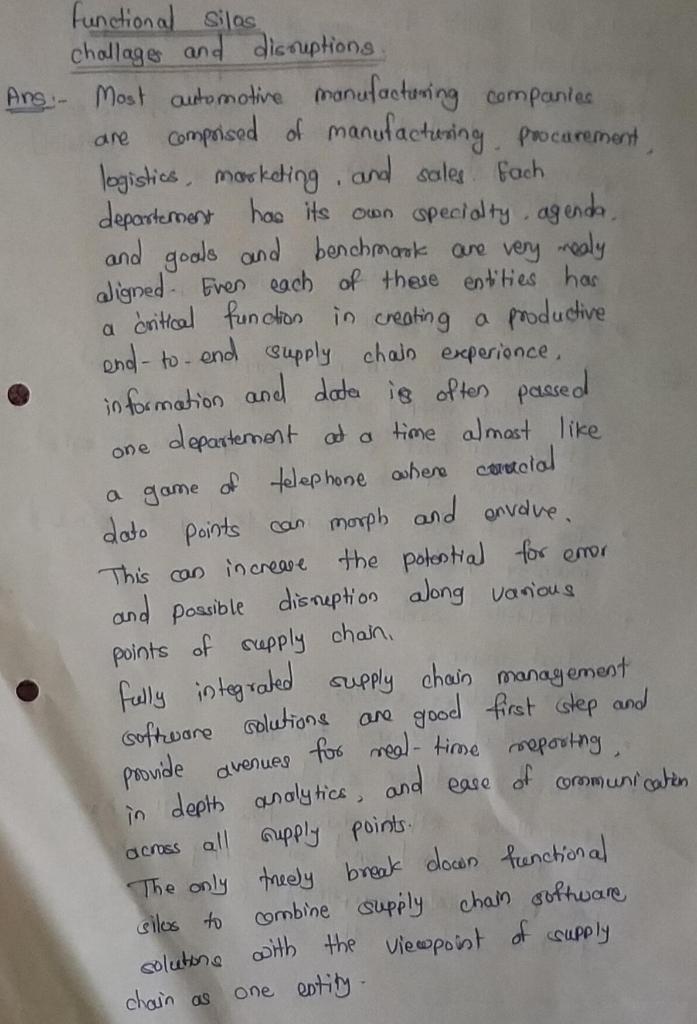 functional silos
challages and disruptions
Ans:- Most automotive manufacturing companies
are comprised of manufacturing, procurement,
logistics, marketing, and sales. Each
departement has its own specialty, agenda,
and goals and benchmark are very realy
aligned. Even each of these entities has
a critical function in creating a productive
end-to-end supply chain experience,
information and data is often passed
one departement at a time almost like
a game of telephone where
data points can morph and envolve.
This can increase the potential for error
and possible disruption along various
points of supply chain.
fully integrated supply chain management
software solutions are good first step and
provide avenues for real-time reporting,
in depth analytics, and ease of communication
across all supply points.
The only treely break down functional
silos to combine supply chain software
solutions with the viewpoint of supply
chain as one entity.